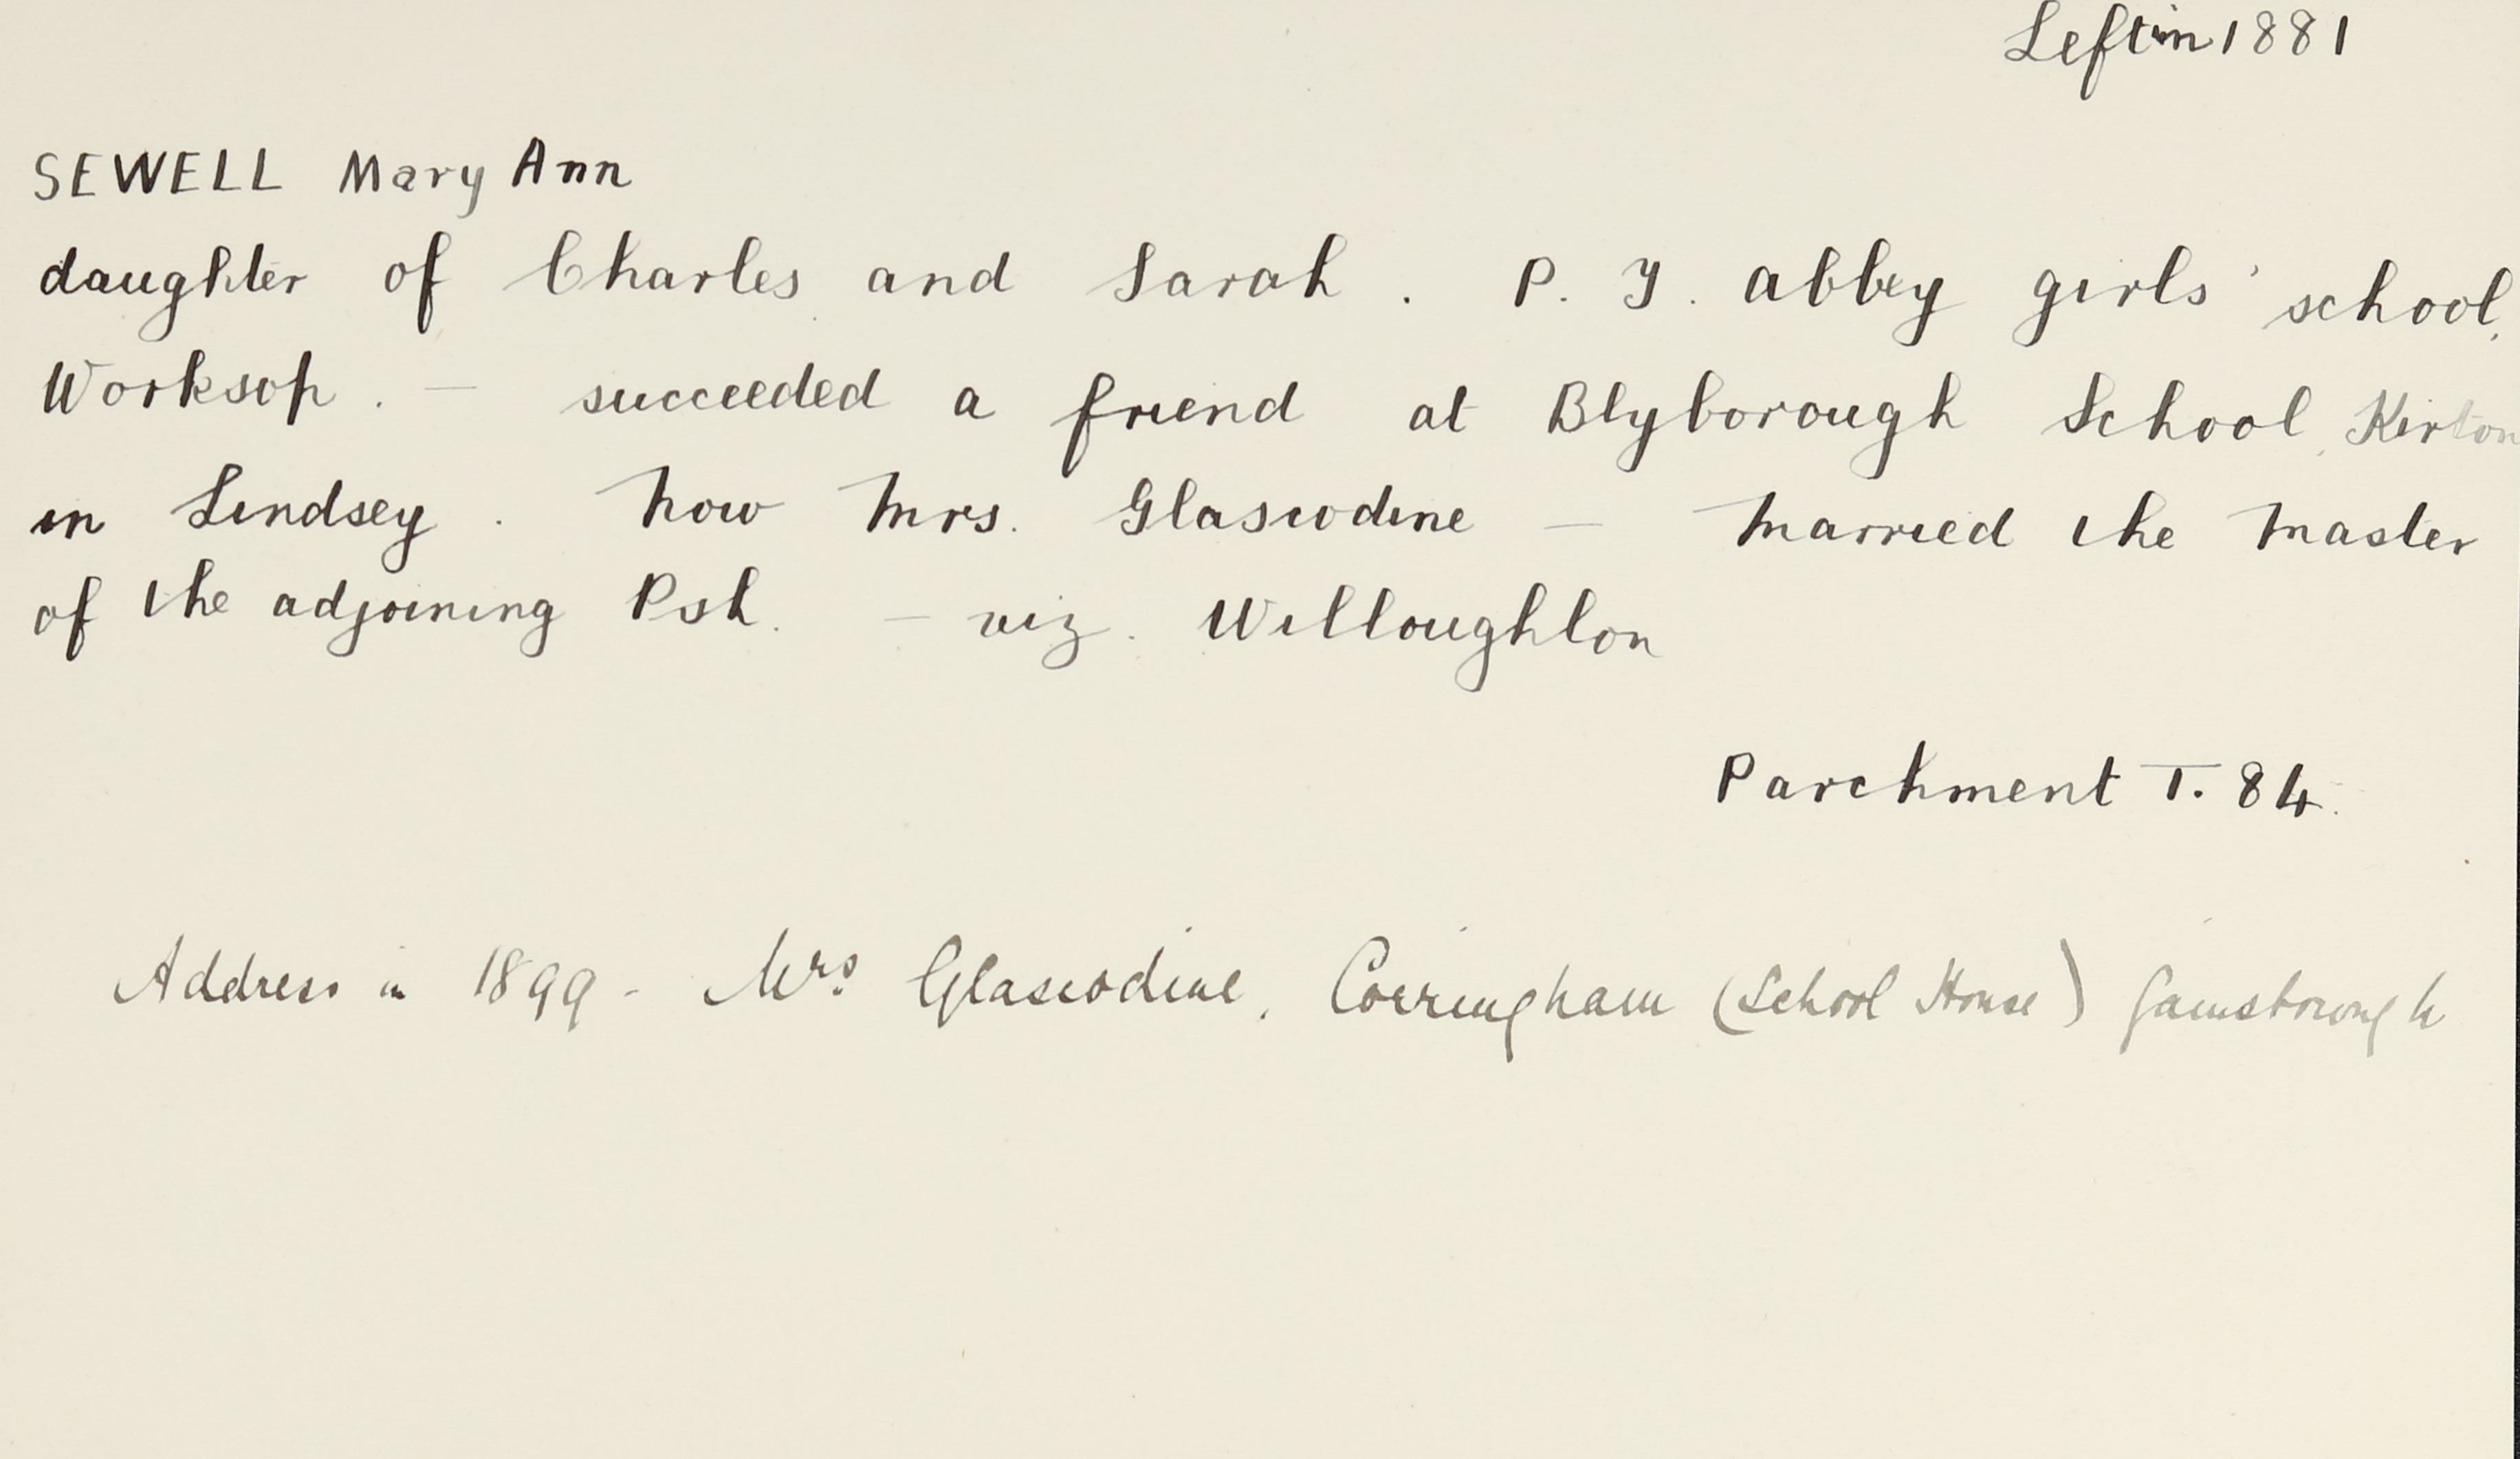 Left in 1881
SEWELL Mary Ann
daughter of Charles and Sarah. P. T. Abbey girls' school,
Worksop. — succeeded a friend at Blyborough School, Kirton
in Lindsey. Now Mrs. Glascodine — Married the Master
of the adjoining Psh. — viz. Willoughton
Parchment T. 84.
Address in 1899 - Mrs Glascodine, Corringham (School House) Gainsborough